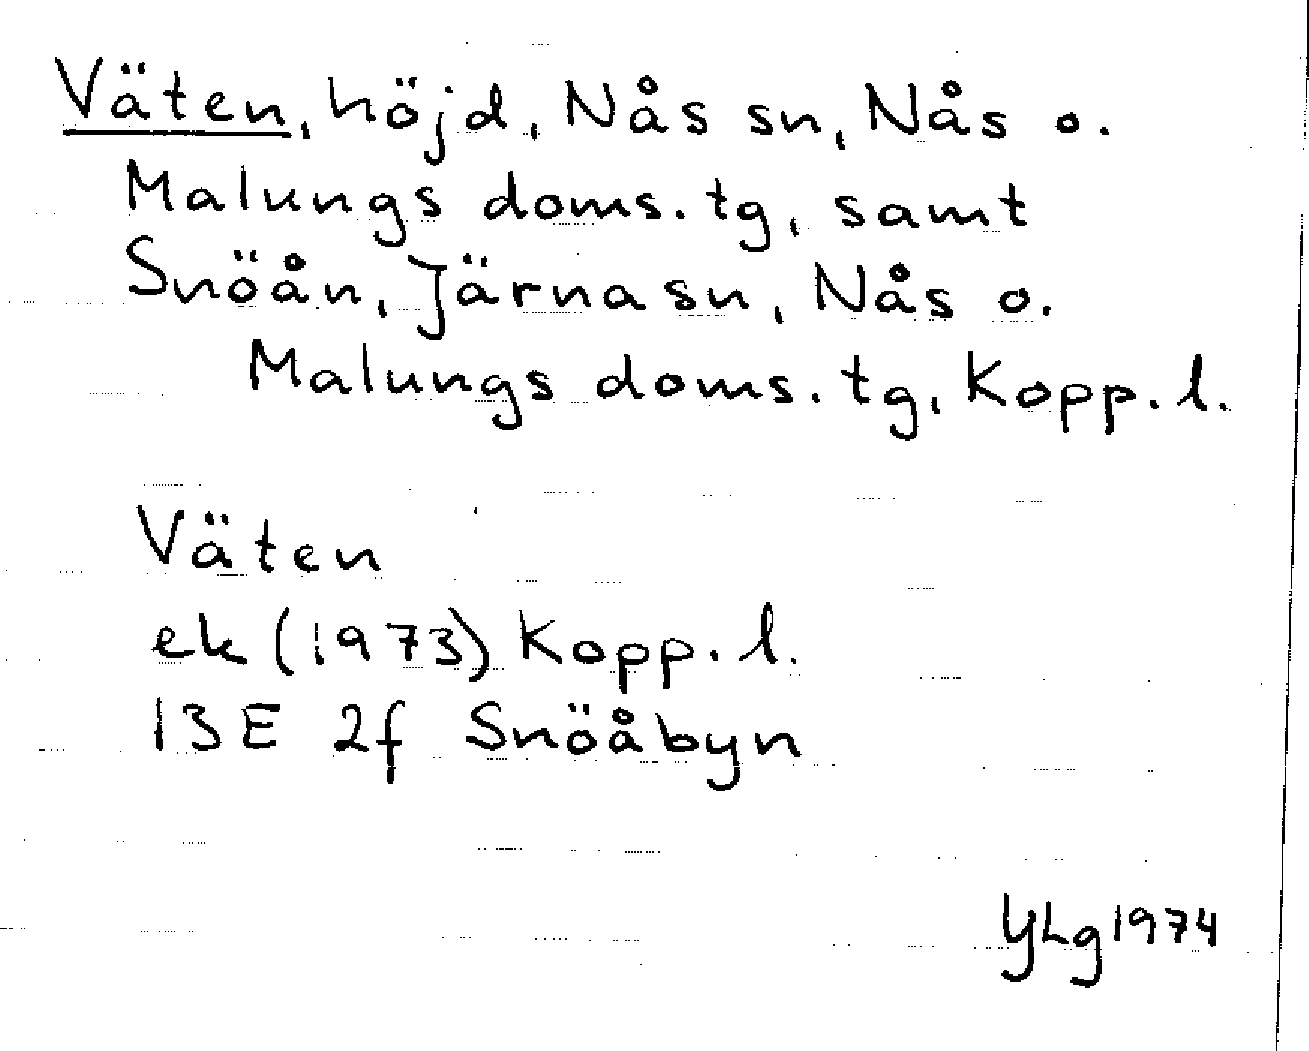 Väten, höjd, Nås sn, Nås o.
Malungs doms. tg, samt
Snöån, Järna sn, Nås o.
Malungs doms. tg, Kopp. l.
Väten
ek (1973) Kopp. l.
13E 2f Snöåbyn
YLg 1974